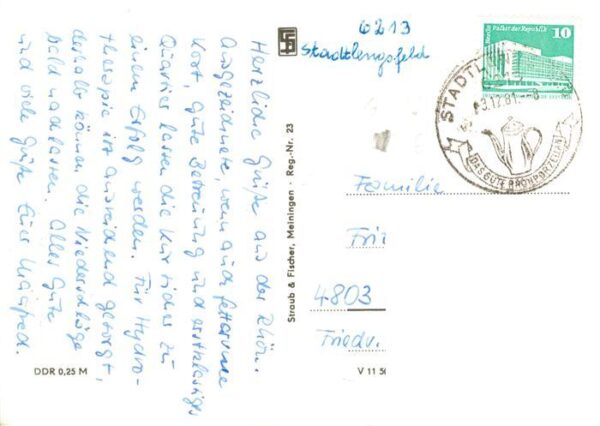 6213
Stadtlengsfeld
Berlin Palast der Republik
10
STADTL
3.12.81.-8
DAS GUTE RHÖNPORZELLAN
Herzliche Grüße aus der Rhön.
Ausgezeichnete, wenn auch fettarme
Kost, gute Betreuung und erstklassiges
Quartier lassen die Kur sicher zu
einem Erfolg werden. Für Hydro-
therapie ist ausreichend gesorgt,
deshalb können die Niederschläge
bald nachlassen. Alles Gute
und viele Grüße Euer Manfred.
Straub & Fischer, Meiningen · Reg-Nr. 23
Familie
Fri
4803
Friedr.
DDR 0,25 M
V 11 50